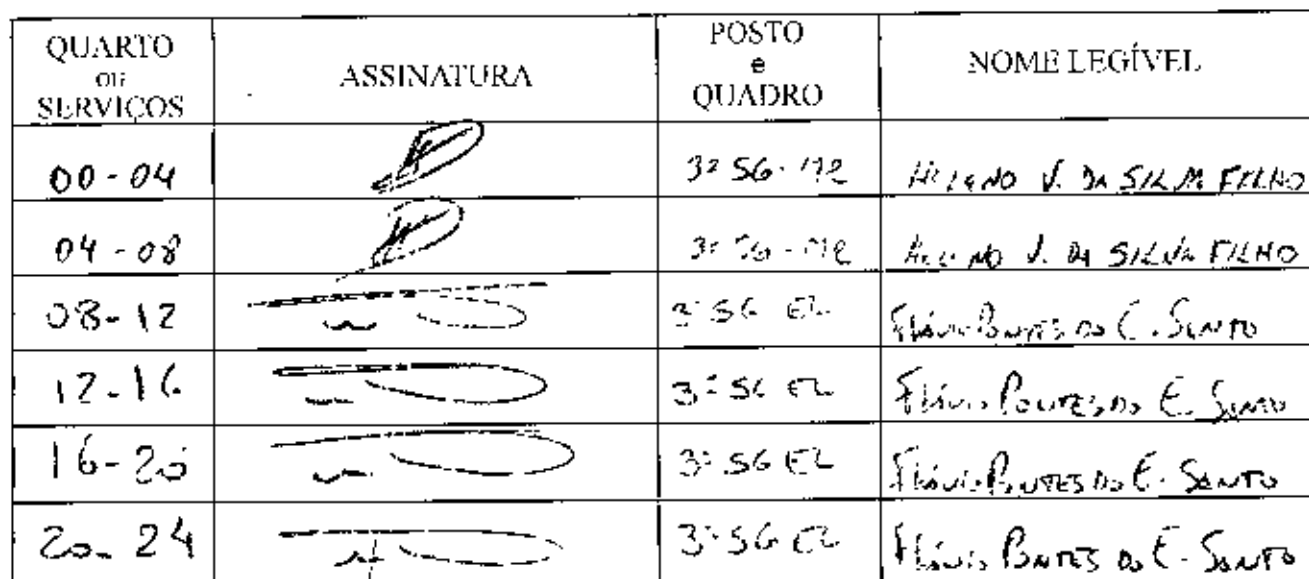 QUARTO
ou
SERVIÇOS
ASSINATURA
POSTO
e
QUADRO
NOME LEGÍVEL
00-04 3º SG-MR HELENO V. DA SILVA FILHO
04-08 3º SG-MR HELENO V. DA SILVA FILHO
08-12 3º SG EL Flávio Pontes do E. Santo
12-16 3º SG EL Flávio Pontes do E. Santo
16-20 3º SG EL Flávio Pontes do E. Santo
20-24 3º SG EL Flávio Pontes do E. Santo